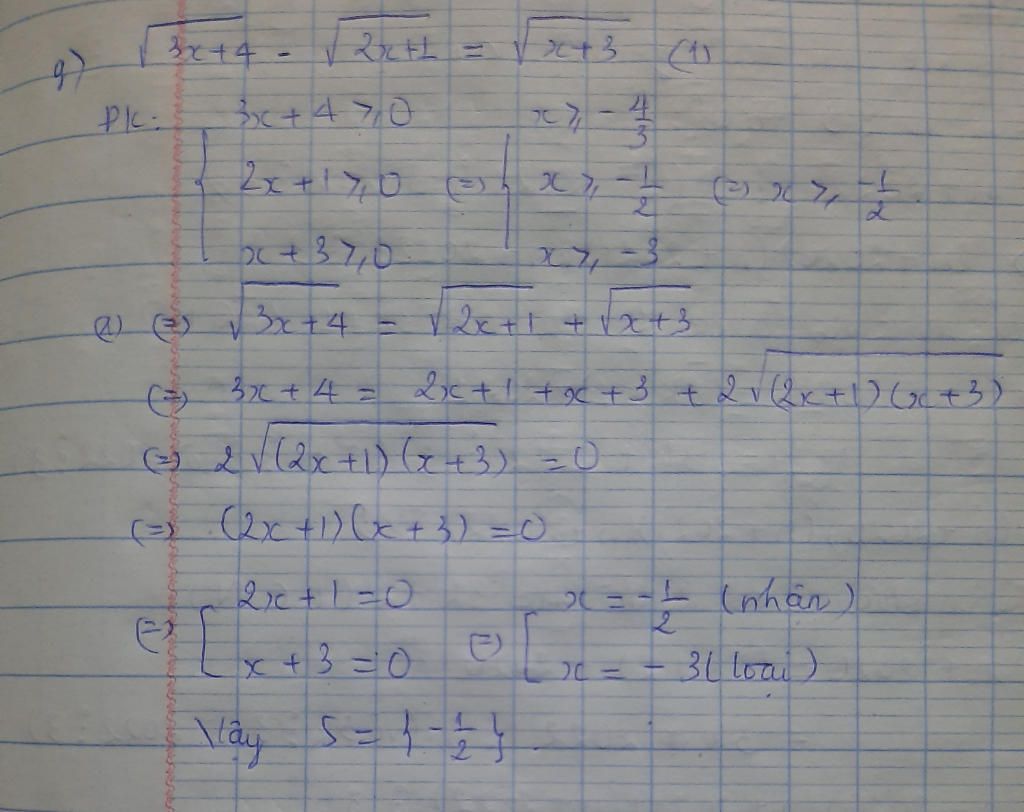 g) √(3x+4) - √(2x+1) = √(x+3) (1)
ĐK: { 3x+4 ⩾ 0 x ⩾ -4/3
2x+1 ⩾ 0 (=) { x ⩾ -1/2 (=) x ⩾ -1/2
x+3 ⩾ 0 x ⩾ -3
(1) (=) √(3x+4) = √(2x+1) + √(x+3)
(=) 3x+4 = 2x+1 + x+3 + 2√((2x+1)(x+3))
(=) 2√((2x+1)(x+3)) = 0
(=) (2x+1)(x+3) = 0
2x+1 = 0 x = -1/2 (nhận)
(=) [ x+3 = 0 (=) [ x = -3 (loại)
Vậy S = {-1/2}.